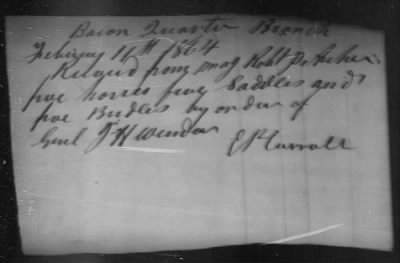 Bacon Quarter Branch
Febuary 11th 1864
Recievd from Maj Robt P Archer
five horses five Saddles and
five Bridles by order of
Genl J H Winder
E P Carroll